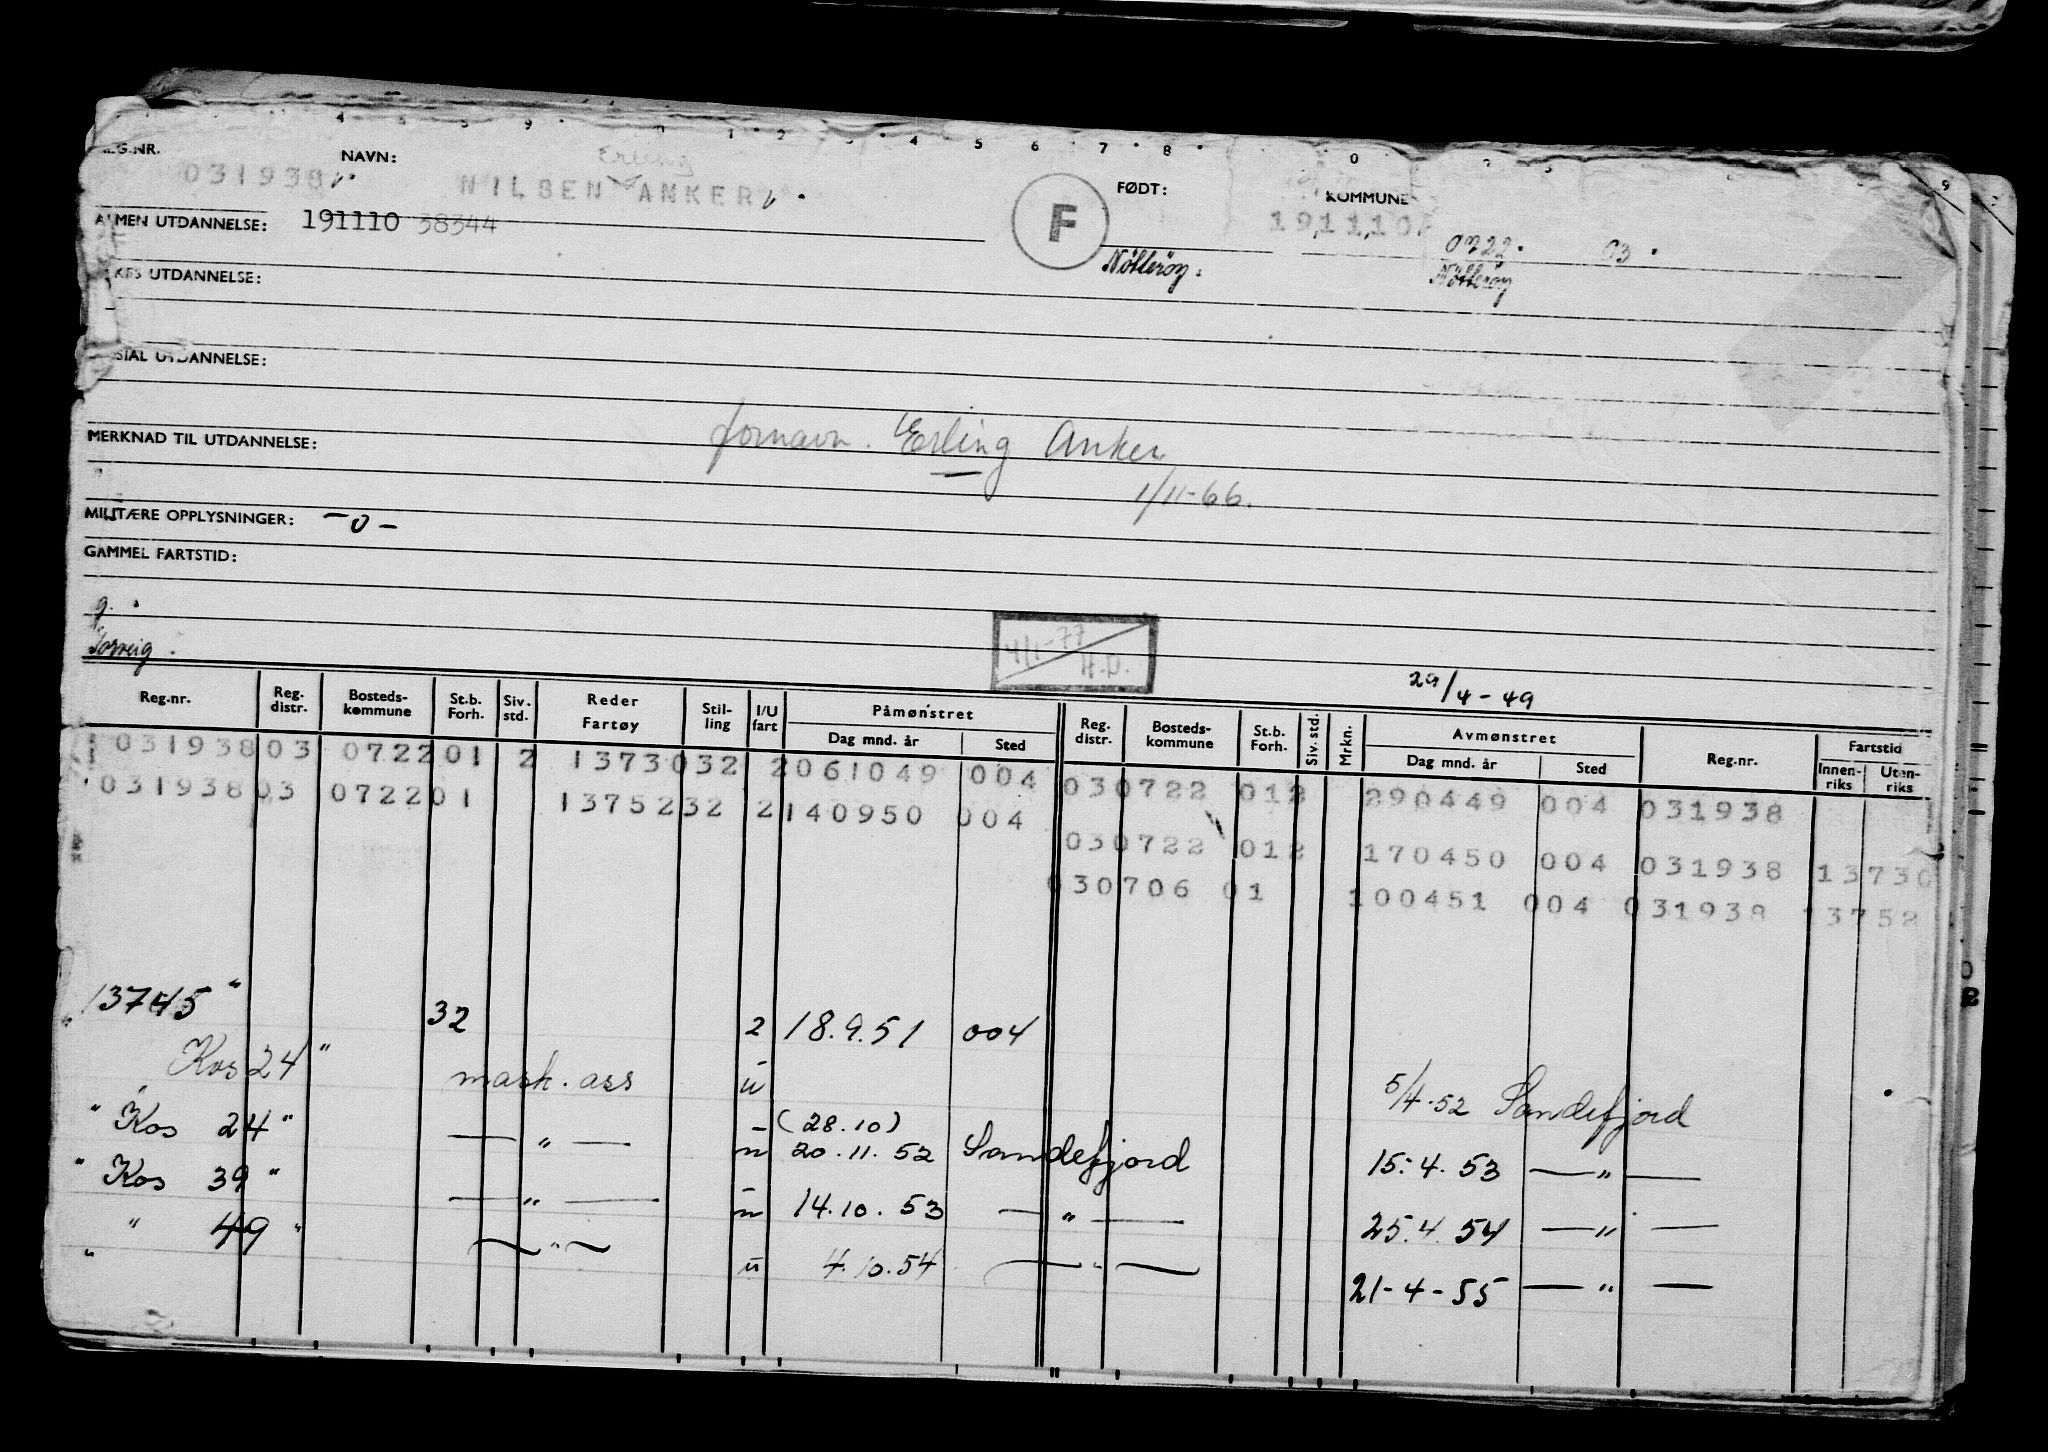 4 9 0 1 2 3 4 5 6 7 8 0 9
REG.NR. NAVN: Erling FØDT: KOMMUNE
031938 NILSEN ANKER F 191110
ALMEN UTDANNELSE: 191110 38344 0722 03
Nötteröy. Nötteröy
UTDANNELSE:
UTDANNELSE:
fornavn. Erling Anker
MERKNAD TIL UTDANNELSE:
1/11-66.
MILITÆRE OPPLYSNINGER: -0-
GAMMEL FARTSTID:
g.
4/1-77 H.D.
29/4-49
Reg.nr. Reg. distr. Bosteds-kommune St.b. Forh. Siv. std. Reder Fartøy Stil-ling I/U fart Påmønstret Dag mnd. år Sted Reg. distr. Bosteds-kommune St.b. Forh. Siv. std. Mrkn. Avmønstret Dag mnd. år Sted Reg.nr. Fartstid Innen-riks Uten-riks
031938 03 0722 01 2 13730 32 2 061049 004 03 0722 01 2 290449 004 031938
031938 03 0722 01 13752 32 2 140950 004 03 0722 01 2 170450 004 031938 13730
03 0706 01 100451 004 031938 13752
13745 " 32 2 18.9.51 004
Kos 24 " mask. ass u 5/4.52 Sandefjord
" Kos 24 " — " — u (28.10) 20.11.52 Sandefjord 15.4.53 — " —
" Kos 39 " — " — u 14.10.53 — " — 25.4.54 — " —
" 49 " — " — u 4.10.54 — " — 21-4-55 — " —
"